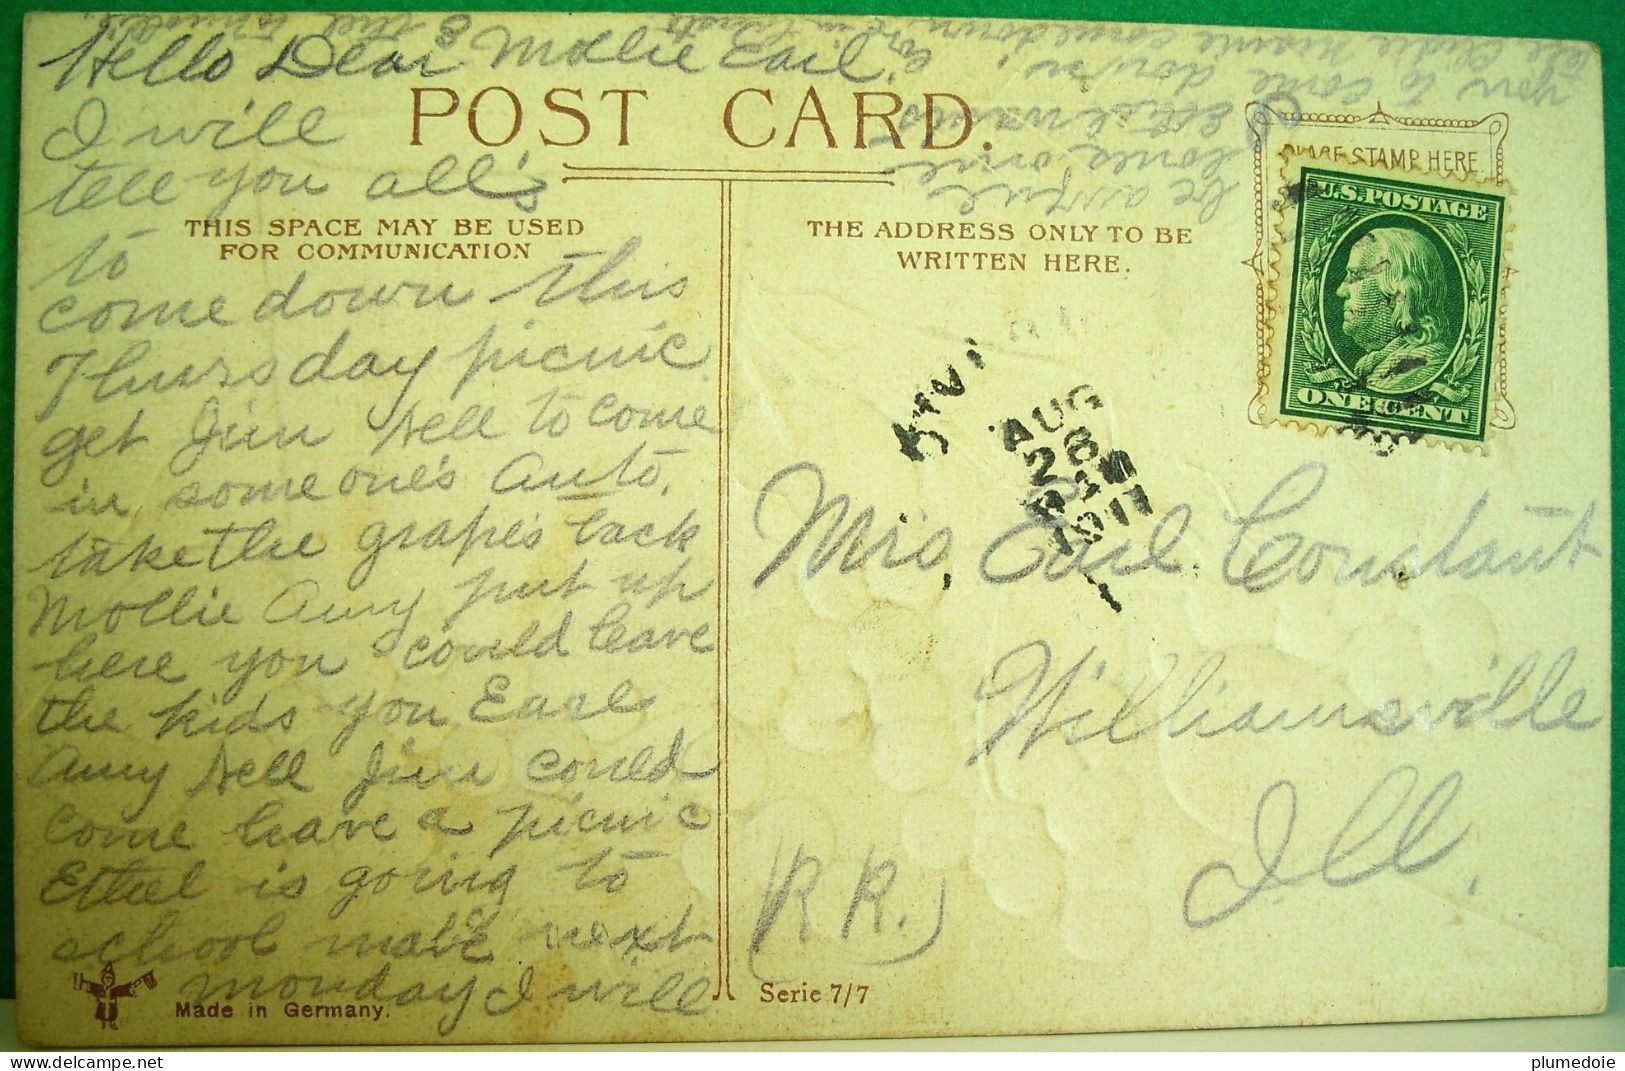 Hello Dear Mollie Earl,
I will
tell you all's
to
come down this
Thursday picnic
get Jim Dell to come
in someone's Auto,
take the grapes back
Mollie Amy put up
here you could leave
the kids you Earl
Amy Dell Jim could
come have a picnic
Ethel is going to
school mate next
monday I will
be awful
lone one
Ethel wants
you to come down
POST CARD.
THIS SPACE MAY BE USED
FOR COMMUNICATION
THE ADDRESS ONLY TO BE
WRITTEN HERE.
STAMP HERE
U.S. POSTAGE
ONE CENT
AUG
26
1911
Mrs Earl Constant
Williamsville
Ill.
(R R.)
Made in Germany.
Serie 7/7
plumedoie
delcampe.net